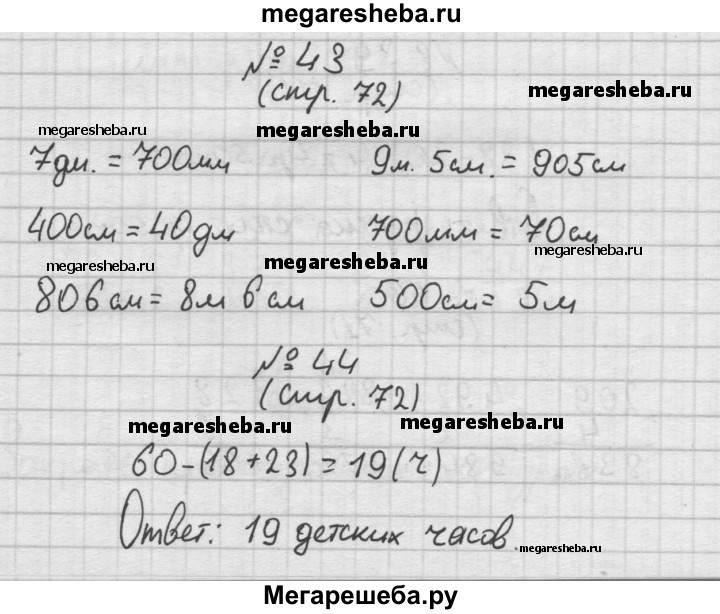 megaresheba.ru
№ 43
(стр. 72)
megaresheba.ru
megaresheba.ru
megaresheba.ru
7дм. = 700мм 9м. 5см. = 905см
400см = 40дм 700мм = 70см
megaresheba.ru
megaresheba.ru
megaresheba.ru
806см = 8м 6см 500см = 5м
№ 44
(стр. 72)
megaresheba.ru
megaresheba.ru
60-(18+23) = 19(ч)
Ответ: 19 детских часов.
megaresheba.ru
Мегарешеба.ру